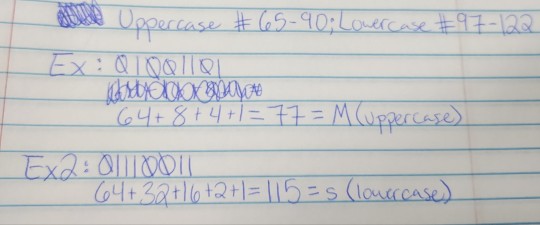 Uppercase # 65-90; Lowercase # 97-122
Ex: 01001101
64+8+4+1=77=M (uppercase)
Ex2: 01110011
64+32+16+2+1=115=s (lowercase)